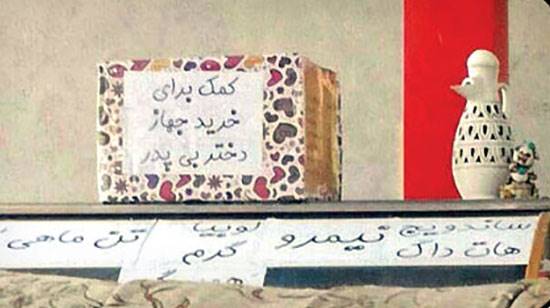 کمک برای
خرید جهاز
دختر بی پدر
ساندویچ
هات داگ
نیمرو
لوبیا
گرم
تن ماهی